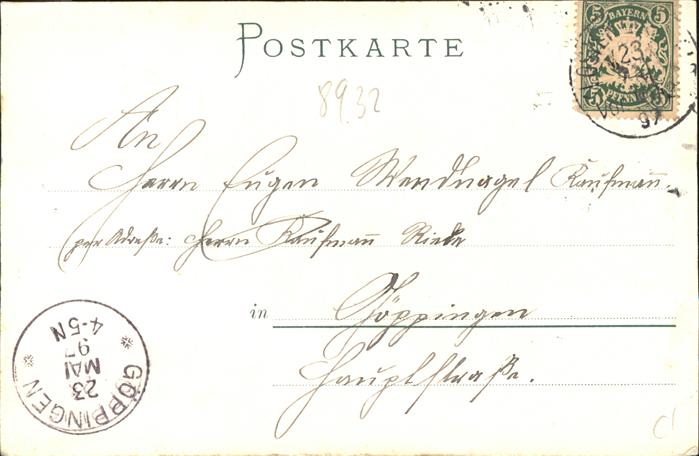 POSTKARTE
BAYERN
5 5
5 PFENNIG 5
23
97
8932
An
Herrn Eugen Wendnagel Kaufmann.
per Adreße: Herrn Kaufmann Rieke
in Göppingen
Hauptstraße.
GÖPPINGEN
23
MAI
97
4-5N